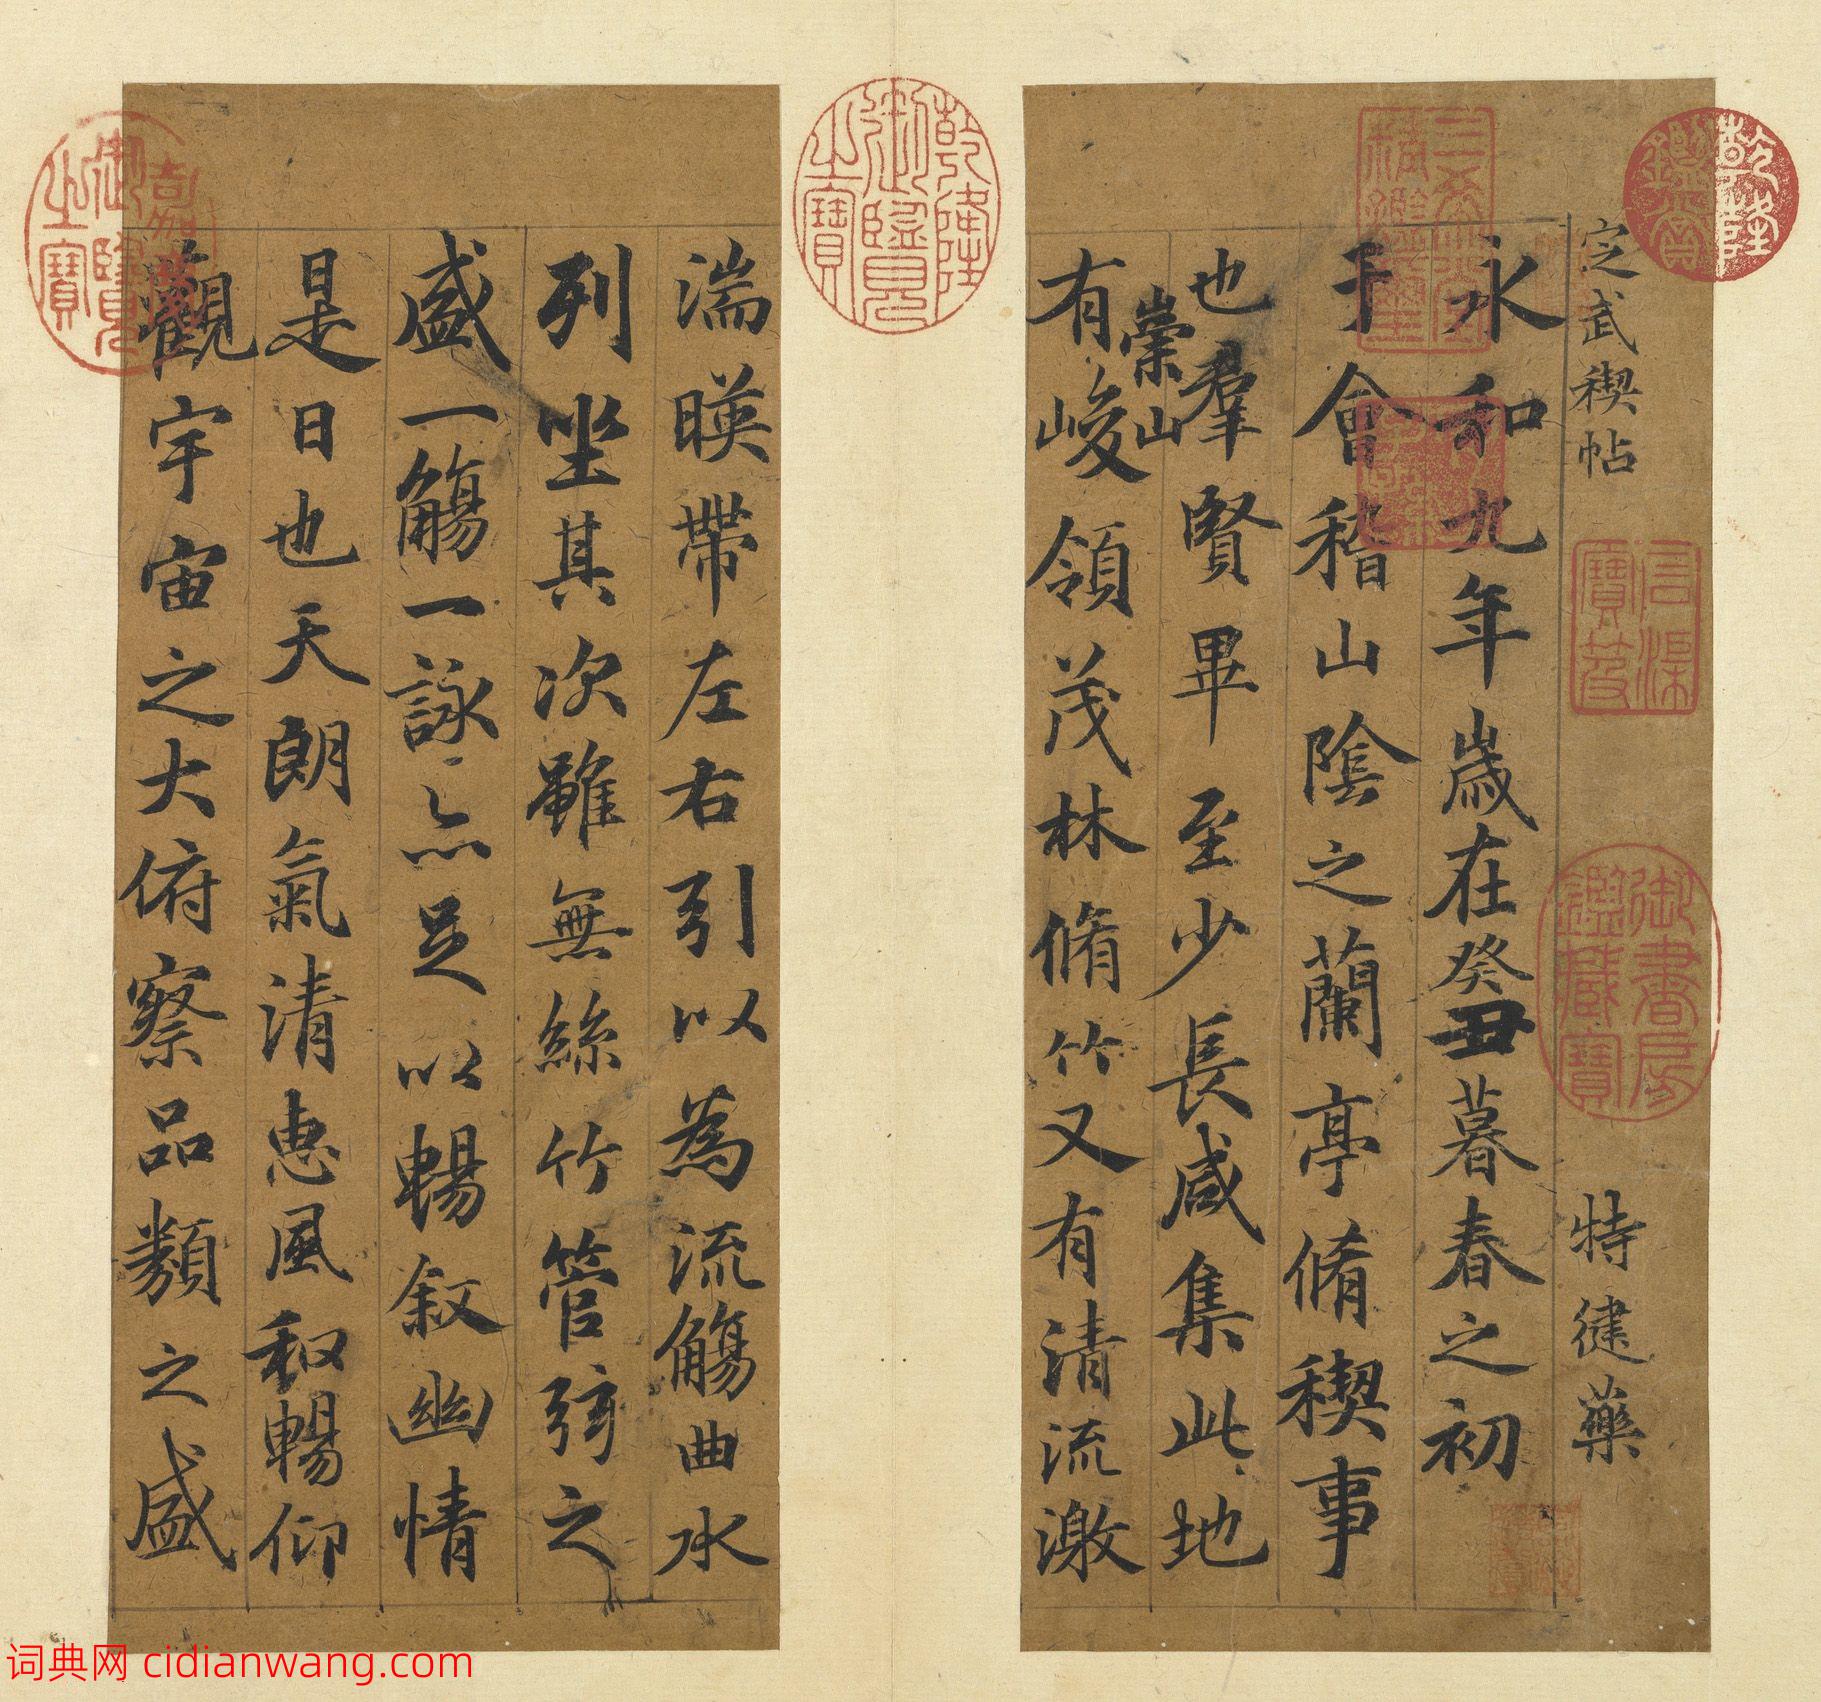 乾隆鑑賞
定武稧帖
石渠寶笈
御書房鑑藏寶
特健藥
三希堂精鑑璽
宜子孫
永和九年歲在癸丑暮春之初
于會稽山陰之蘭亭脩稧事
也羣賢畢至少長咸集此地
崇山
有峻領茂林脩竹又有清流激
乾隆御覽之寶
湍暎帶左右引以為流觴曲水
列坐其次雖無絲竹管弦之
盛一觴一詠亦足以暢敘幽情
是日也天朗氣清惠風和暢仰
觀宇宙之大俯察品類之盛
嘉慶御覽之寶
词典网 cidianwang.com